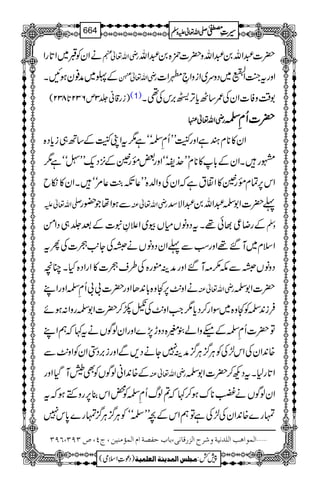 سیرتِ مصطفی صلی اللہ تعالیٰ علیہ وسلم
664
حضرت عبداللہ بن عبداللہ و حضرت حمزہ بن عبداللہ رضی اللہ تعالیٰ عنہم نے ان کو قبر میں اتارا
اور یہ جنۃ البقیع میں دوسری ازواجِ مطہرات رضی اللہ تعالیٰ عنہن کے پہلو میں مدفون ہوئیں۔
بوقت وفات ان کی عمر ساٹھ یا تریسٹھ برس کی تھی۔ (1) (زرقانی جلد ۳ ص ۲۳۶ تا ۲۳۸)
حضرت اُمِ سلمہ رضی اللہ تعالیٰ عنہا
ان کا نام ہند ہے اور کنیت ”اُم سلمہ“ ہے مگر یہ اپنی کنیت کے ساتھ ہی زیادہ
مشہور ہیں۔ ان کے باپ کا نام ”حذیفہ“ اور بعض مؤرخین کے نزدیک ”سہل“ ہے مگر
اس پر تمام مؤرخین کا اتفاق ہے کہ ان کی والدہ ”عاتکہ بنت عامر“ ہیں۔ ان کا نکاح
پہلے حضرت ابوسلمہ عبداللہ بن عبدالاسد رضی اللہ تعالیٰ عنہ سے ہوا تھا جو حضور صلی اللہ تعالیٰ علیہ
وسلم کے رضاعی بھائی تھے۔ یہ دونوں میاں بیوی اعلانِ نبوت کے بعد جلد ہی دامن
اسلام میں آ گئے تھے اور سب سے پہلے ان دونوں نے حبشہ کی جانب ہجرت کی پھر یہ
دونوں حبشہ سے مکہ مکرمہ آ گئے اور مدینہ منورہ کی طرف ہجرت کا ارادہ کیا۔ چنانچہ
حضرت ابوسلمہ رضی اللہ تعالیٰ عنہ نے اونٹ پر کجاوہ باندھا اور حضرت بی بی اُمِ سلمہ اور اپنے
فرزند سلمہ کو کجاوہ میں سوار کر دیا مگر جب اونٹ کی نکیل پکڑ کر حضرت ابوسلمہ روانہ ہوئے
تو حضرت اُمِ سلمہ کے میکے والے بنو مغیرہ دوڑ پڑے اور ان لوگوں نے یہ کہا کہ ہم اپنے
خاندان کی اس لڑکی کو ہرگز ہرگز مدینہ نہیں جانے دیں گے اور زبردستی ان کو اونٹ سے
اتار لیا۔ یہ دیکھ کر حضرت ابوسلمہ رضی اللہ تعالیٰ عنہ کے خاندانی لوگوں کو بھی طیش آ گیا اور
ان لوگوں نے غضب ناک ہو کر کہا کہ تم لوگ اُمِ سلمہ کو محض اس بنا پر روکتے ہو کہ یہ
تمہارے خاندان کی لڑکی ہے تو ہم اس کے بچہ ”سلمہ“ کو ہرگز ہرگز تمہارے پاس نہیں
......المواھب اللدنیة وشرح الزرقانی،باب حفصة ام المؤمنین، ج٤، ص ٣٩٣،٣٩٦
پیش کش: مجلس المدینة العلمیة (دعوتِ اسلامی)